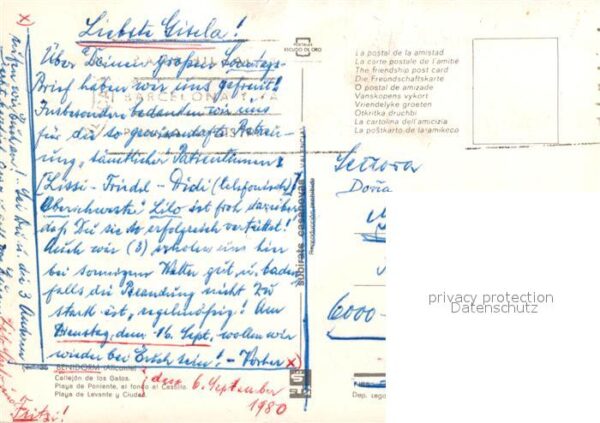 Liebste Gisela!
Über Deinen großen Sonntags-
Brief haben wir uns gefreut!
Insbesondere bedanken wir uns
für die so gewissenhafte Betreu-
ung sämtlicher Patientinnen:
(Lissi - Friedel - Didi (telefonisch)!
Oberschwester Lilo ist froh darüber
daß Du sie so erfolgreich vertrittst!
Auch wir (3) erholen uns hier
bei sonnigem Wetter gut u. baden
falls die Brandung nicht zu
stark ist, regelmäßig! Am
Dienstag, dem 16. Sept. wollen wir
wieder bei Euch sein! - Vorher x)
x)
anrufen wir
Sei Du u. die 3 Anderen
Fritzi!
den 6. September
1980
BENIDORM (Alicante)
Callejón de los Gatos.
Playa de Poniente, al fondo el Castillo.
Playa de Levante y Ciudad.
BARCELONA
POSTALES
ESCUDO DE ORO
subirats casanovas
VALENCIA
Reproducción prohibida
Dep. Lega
La postal de la amistad
La carte postale de l'amitié
The friendship post card
Die Freundschaftskarte
O postal de amizade
Vanskopens vykort
Vriendelyke groeten
Otkritka druchbi
La cartolina dell'amicizia
La poŝtkarto de la amikeco
Señora
Doria
6000-
privacy protection
Datenschutz